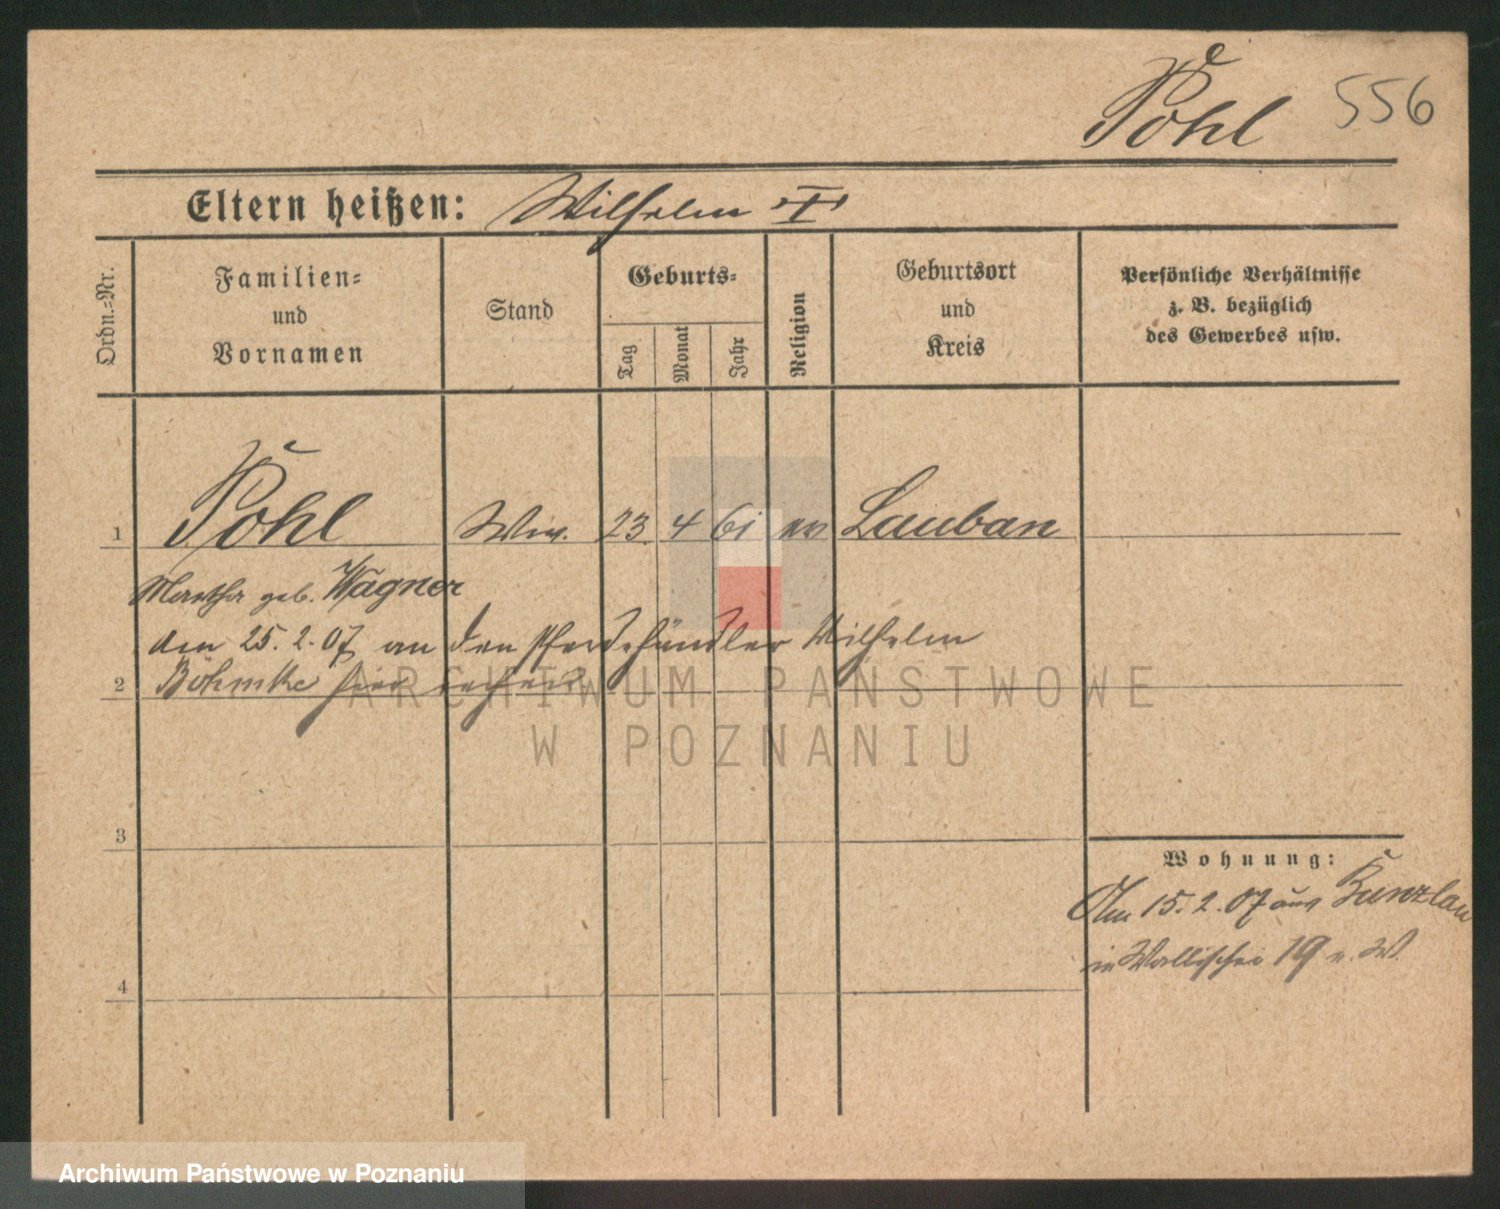 Pohl 556
Eltern heißen: Wilhelm
Ordn.-Nr.
Familien-
und
Vornamen
Stand
Geburts-
Tag
Monat
Jahr
Religion
Geburtsort
und
Kreis
Persönliche Verhältnisse
z. B. bezüglich
des Gewerbes usw.
1 Pohl Ww. 23. 4 61 ev Lauban
Martha geb. Wagner
den 25. 2. 07 an den Pferdehändler Wilhelm
2 Böhmke hier
3
Wohnung:
Am 15. 2. 07 aus Bunzlau
in Wallischei 19 v. W.
4
ARCHIWUM PAŃSTWOWE
W POZNANIU
Archiwum Państwowe w Poznaniu